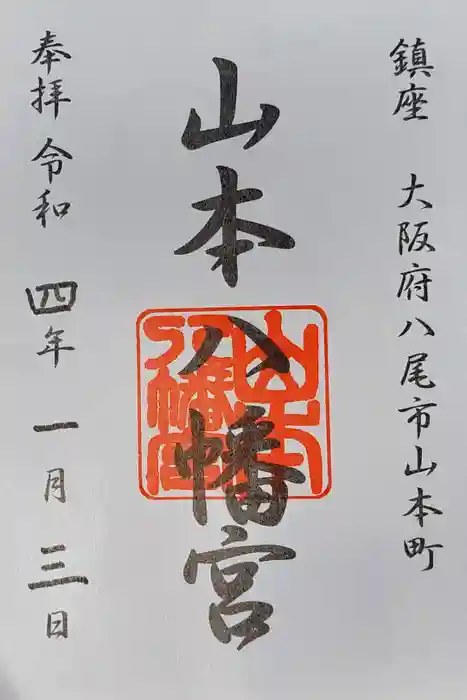 鎮座 大阪府八尾市山本町
山本八幡宮
奉拝 令和 四年 一月 三日
山本八幡宮